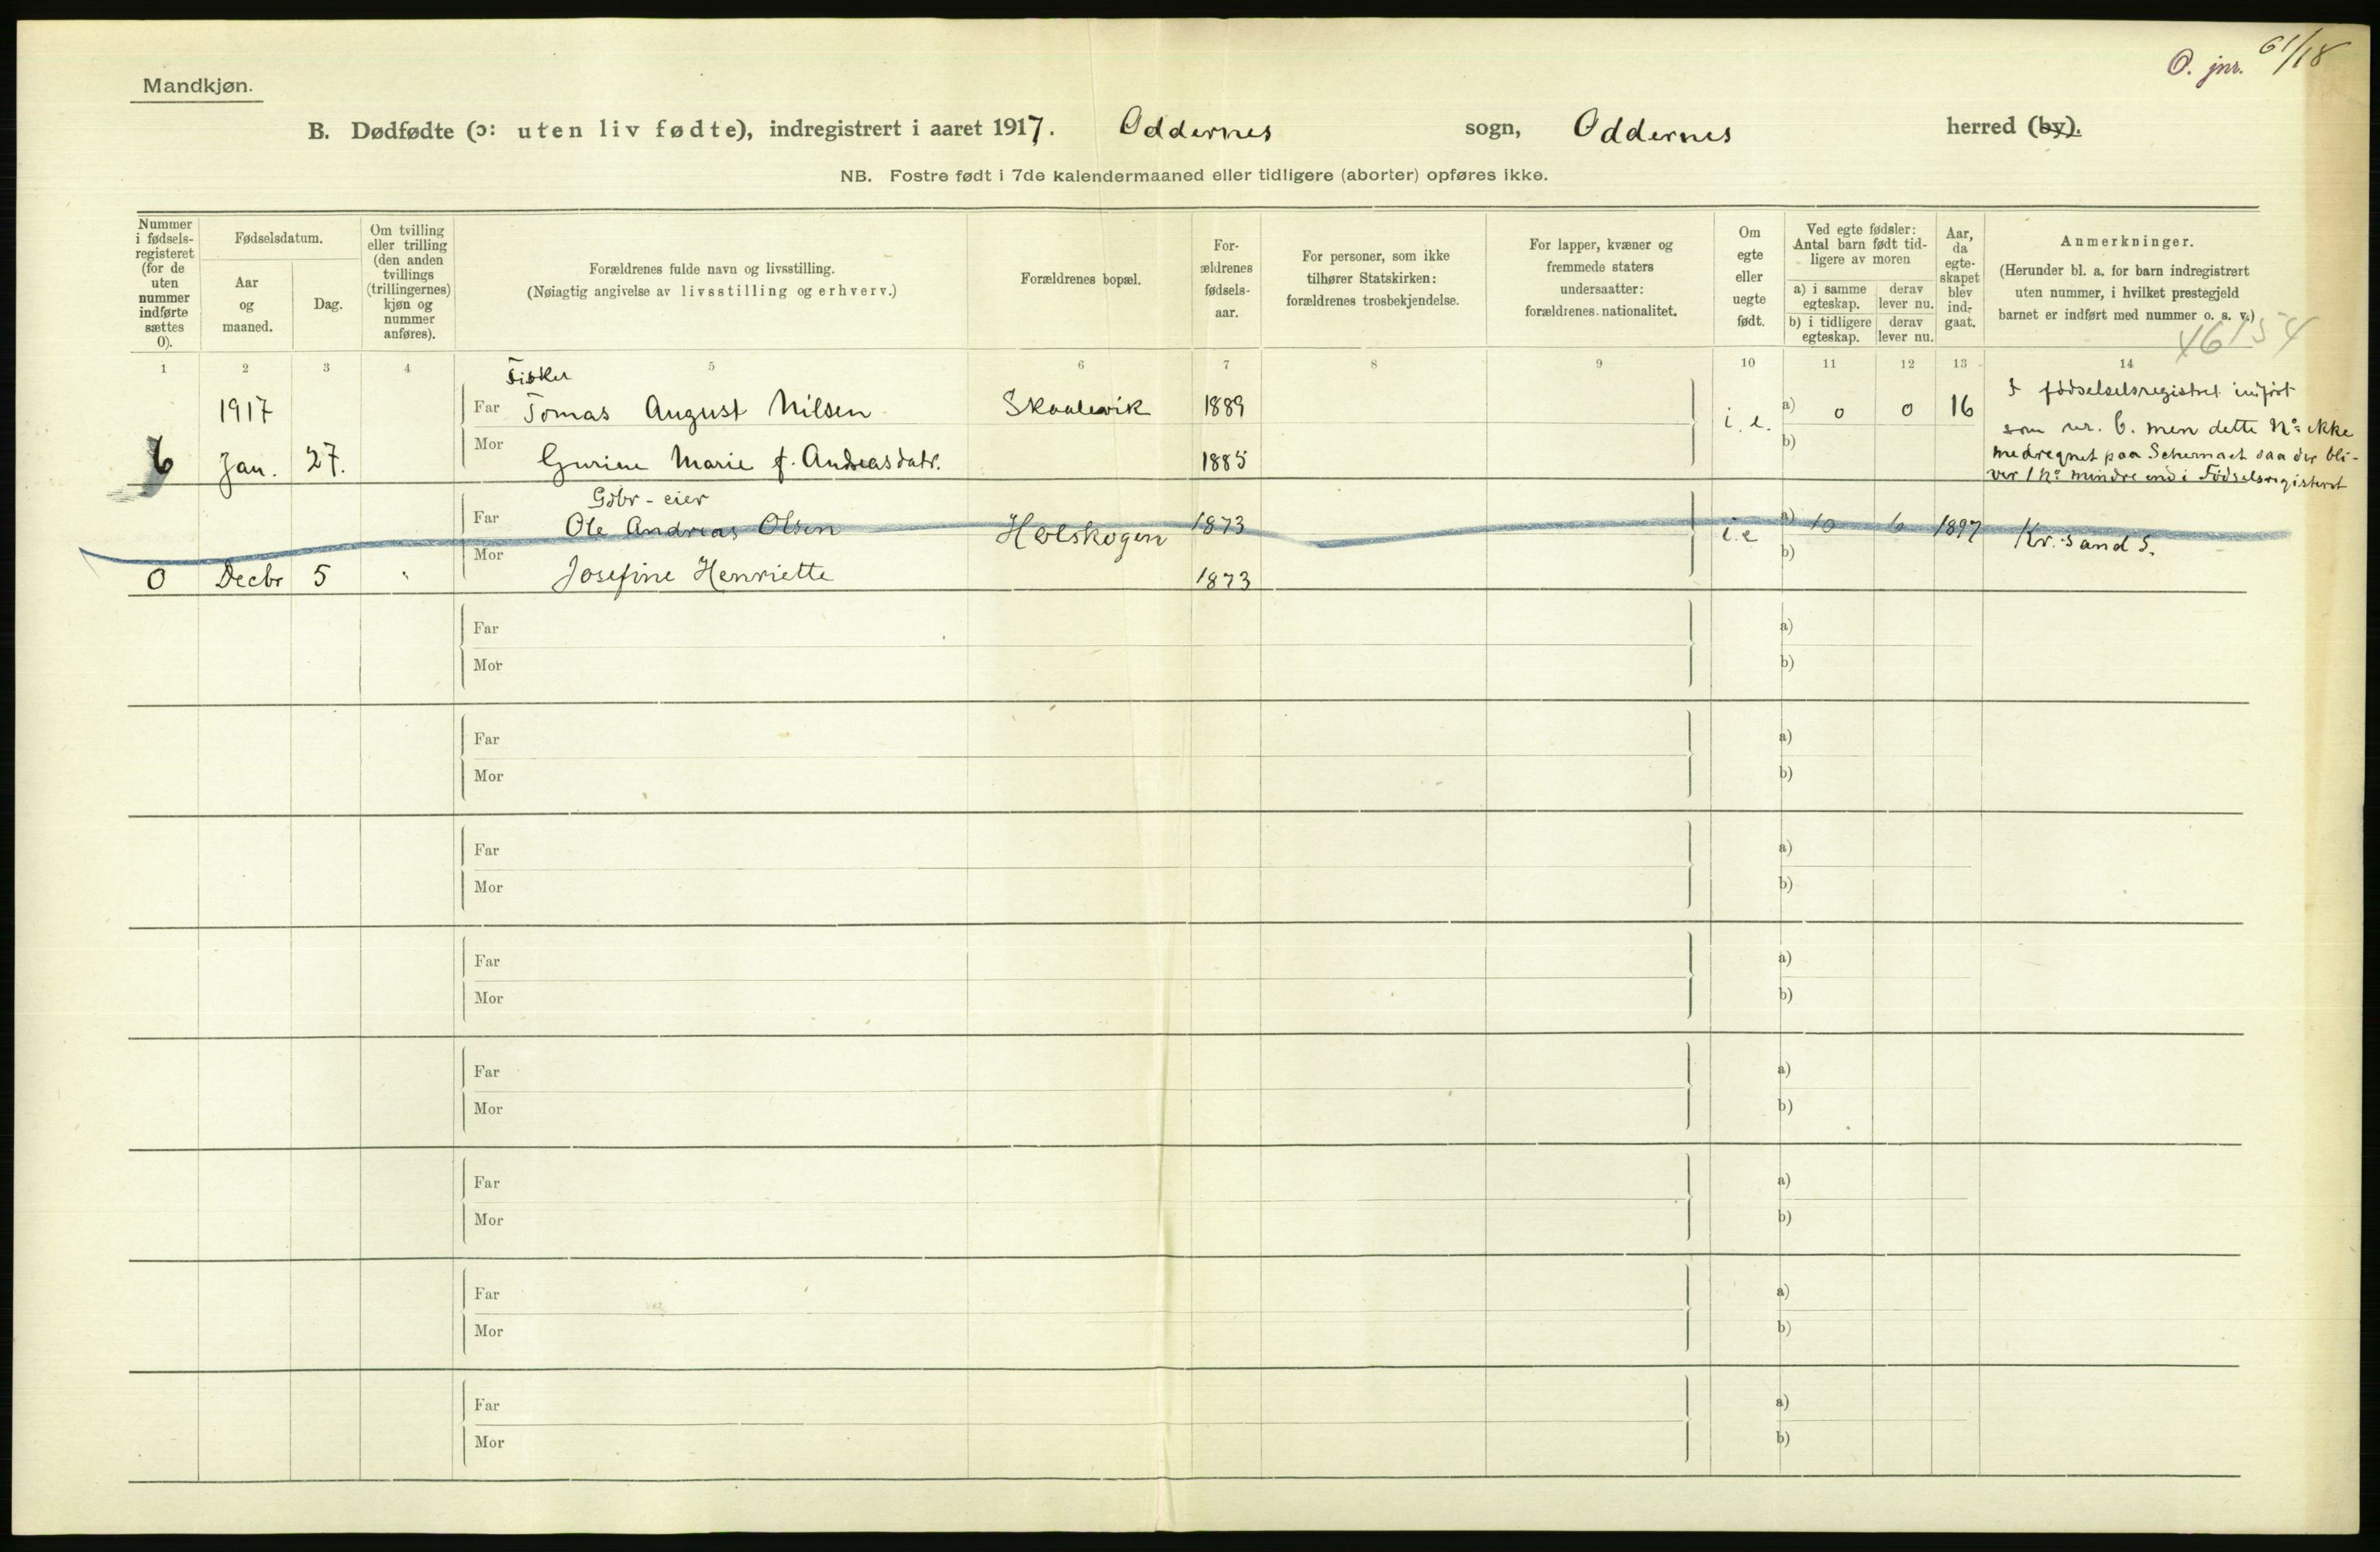 O. jnr. 61/18
Mandkjøn.
B. Dødfødte (ɔ: uten liv fødte), indregistrert i aaret 1917. Oddernes sogn, Oddernes herred (by).
NB. Fostre født i 7de kalendermaaned eller tidligere (aborter) opføres ikke.
Nummer
i fødsels-
registeret
(for de
uten
nummer
indførte
sættes
0).
Fødselsdatum.
Aar
og
maaned.
Dag.
Om tvilling
eller trilling
(den anden
tvillings
(trillingernes)
kjøn og
nummer
anføres).
Forældrenes fulde navn og livsstilling.
(Nøiagtig angivelse av livsstilling og erhverv.)
Forældrenes bopæl.
For-
ældrenes
fødsels-
aar.
For personer, som ikke
tilhører Statskirken:
forældrenes trosbekjendelse.
For lapper, kvæner og
fremmede staters
undersaatter:
forældrenes nationalitet.
Om
egte
eller
uegte
født.
Ved egte fødsler:
Antal barn født tid-
ligere av moren
a) i samme
egteskap.
derav
lever nu.
b) i tidligere
egteskap.
derav
lever nu.
Aar,
da
egte-
skapet
blev
ind-
gaat.
Anmerkninger.
(Herunder bl. a. for barn indregistrert
uten nummer, i hvilket prestegjeld
barnet er indført med nummer o. s. v.)
1 2 3 4 5 6 7 8 9 10 11 12 13 14
Fisker
1917 Far Tomas August Nilsen Skaalevik 1889 i. e. a) 0 0 16
6 Jan. 27. Mor Gurine Marie f. Andreasdatr. 1885 b)
I fødselselsregistret indført
som nr. 6. men dette No ikke
medregnet paa Schemaet saa der bli-
ver 1 No mindre end i Fødselsregisteret
Gdbr-eier
Far Ole Andreas Olsen Holskogen 1873 i. e a) 10 6 1897 Kr.sand S.
0 Decbr 5 " Mor Josefine Henriette 1873 b)
Far a)
Mor b)
Far a)
Mor b)
Far a)
Mor b)
Far a)
Mor b)
Far a)
Mor b)
Far a)
Mor b)
Far a)
Mor b)
Far a)
Mor b)